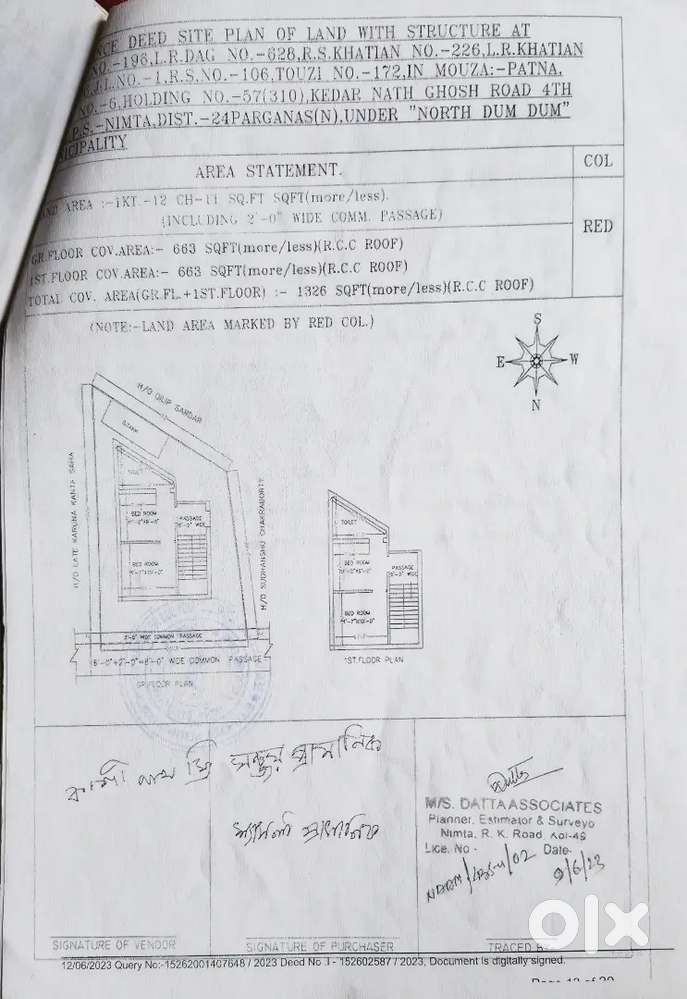 NCE DEED SITE PLAN OF LAND WITH STRUCTURE AT
NO.-196,L.R.DAG NO.-628,R.S.KHATIAN NO.-226,L.R.KHATIAN
J.L.NO.-1,R.S.NO.-106,TOUZI NO.-172,IN MOUZA:-PATNA,
NO.-6,HOLDING NO.-57(310),KEDAR NATH GHOSH ROAD 4TH
P.S.-NIMTA,DIST.-24PARGANAS(N),UNDER "NORTH DUM DUM"
ICIPALITY
AREA STATEMENT.
COL
AREA :-1KT.-12 CH-11 SQ.FT SQFT(more/less).
(INCLUDING 2'-0" WIDE COMM. PASSAGE)
RED
GR.FLOOR COV.AREA:- 663 SQFT(more/less)(R.C.C ROOF)
1ST.FLOOR COV.AREA:- 663 SQFT(more/less)(R.C.C ROOF)
TOTAL COV. AREA(GR.FL.+1ST.FLOOR) :- 1326 SQFT(more/less)(R.C.C ROOF)
(NOTE:-LAND AREA MARKED BY RED COL.)
S
E
W
N
H/O DILIP SARDAR
H/O LATE KARUNA KANTA SAHA
H/O SUDHANSHU CHAKRABORTY
TOILET
BED ROOM
PASSAGE
WIDE
BED ROOM
2'-0" WIDE COMMON PASSAGE
(6'-0"+2'-0"=8'-0" WIDE COMMON PASSAGE)
GR.FLOOR PLAN
TOILET
BED ROOM
PASSAGE
WIDE
BED ROOM
1ST.FLOOR PLAN
প্রামানিক
M/S. DATTA ASSOCIATES
Planner, Estimator & Surveyo
Nimta, R. K. Road Kol-49
Lice. No - Date-
9/6/23
SIGNATURE OF VENDOR
SIGNATURE OF PURCHASER
TRACED B
12/06/2023 Query No:-15262001407648 / 2023 Deed No :I - 152602587 / 2023, Document is digitally signed.
olx